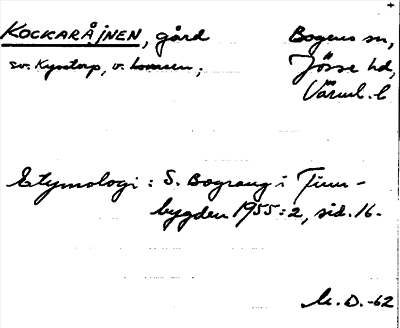 KOCKARÅJNEN, gård
Bogens sn,
sv. Kynstorp, v. 
Jösse hd,
Värml. l
Etymologi: S. Bograng i Finn-
bygden 1955:2, sid. 16.
M.D.-62